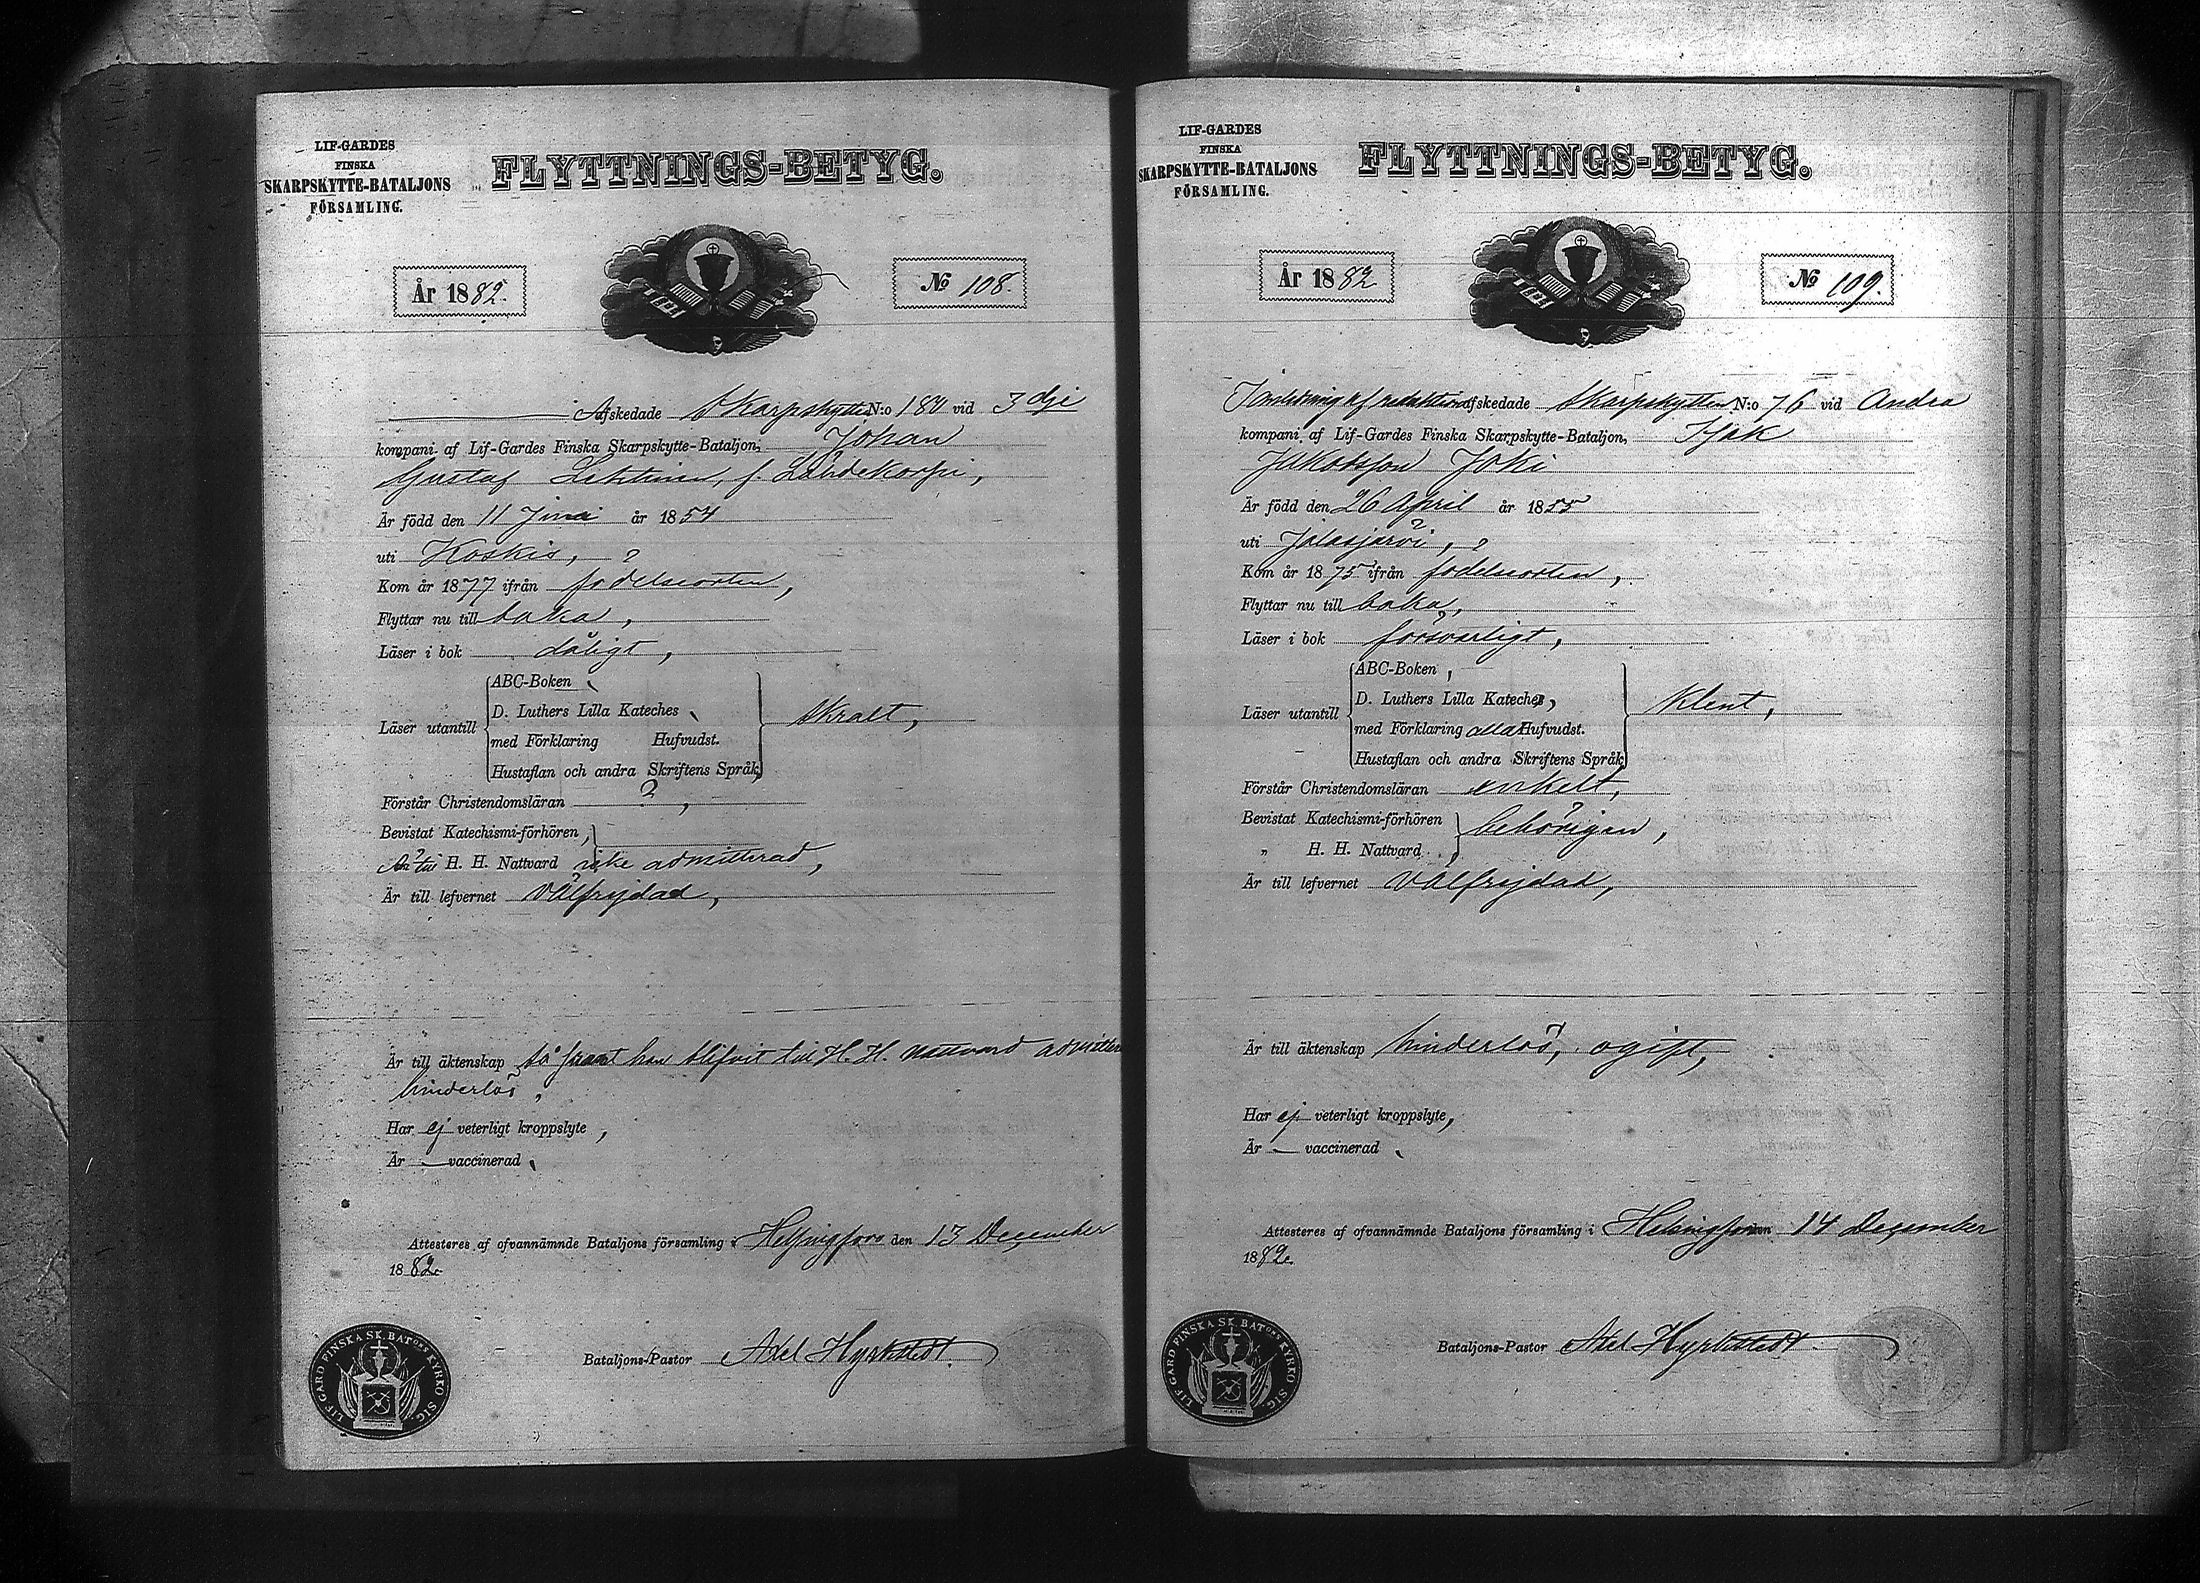 LIF-GARDES
FINSKA
SKARPSKYTTE-BATALJONS
FÖRSAMLING.
FLYTTNINGS-BETYG.
År 1882.
№ 108.
Afskedade Skarpskytten N:o 180 vid 3dje
kompani af Lif-Gardes Finska Skarpskytte-Bataljon, Johan
Gustaf
Är född den 11 Juni år 1854
uti Koskis, ?
Kom år 1877 ifrån födelseorten,
Flyttar nu till baka,
Läser i bok dåligt,
ABC-Boken,
D. Luthers Lilla Kateches,
Läser utantill skralt,
med Förklaring Hufvudst.
Hustaflan och andra Skriftens Språk,
Förstår Christendomsläran ?,
Bevistat Katechismi-förhören,
Är till H. H. Nattvard icke admitterad,
Är till lefvernet välfrejdad,
Är till äktenskap så framt han blifvit till H. H. Nattvard
hinderlös,
Har ej veterligt kroppslyte,
Är — vaccinerad,
Attesteres af ofvannämnde Bataljons församling i Helsingfors den 13 December
1882.
Bataljons-Pastor Axel Hyrkstedt.
LIF-GARD FINSKA SK. BATONS KYRKO SIG.
LIF-GARDES
FINSKA
SKARPSKYTTE-BATALJONS
FÖRSAMLING.
FLYTTNINGS-BETYG.
År 1882
№ 109.
afskedade Skarpskytten N:o 76 vid Andra
kompani af Lif-Gardes Finska Skarpskytte-Bataljon,
Jakobsson Joki
Är född den 26 April år 1855
uti Jalasjärvi,
Kom år 1875 ifrån födelseorten,
Flyttar nu till baka,
Läser i bok försvarligt,
ABC-Boken,
D. Luthers Lilla Kateches,
Läser utantill klent,
med Förklaring alla Hufvudst.
Hustaflan och andra Skriftens Språk
Förstår Christendomsläran enkelt,
Bevistat Katechismi-förhören behörigen,
„ H. H. Nattvard,
Är till lefvernet välfrejdad,
Är till äktenskap hinderlös, ogift,
Har ej veterligt kroppslyte,
Är — vaccinerad,
Attesteres af ofvannämnde Bataljons församling i Helsingfors den 14 December
1882.
Bataljons-Pastor Axel Hyrkstedt.
LIF-GARD FINSKA SK. BATONS KYRKO SIG.